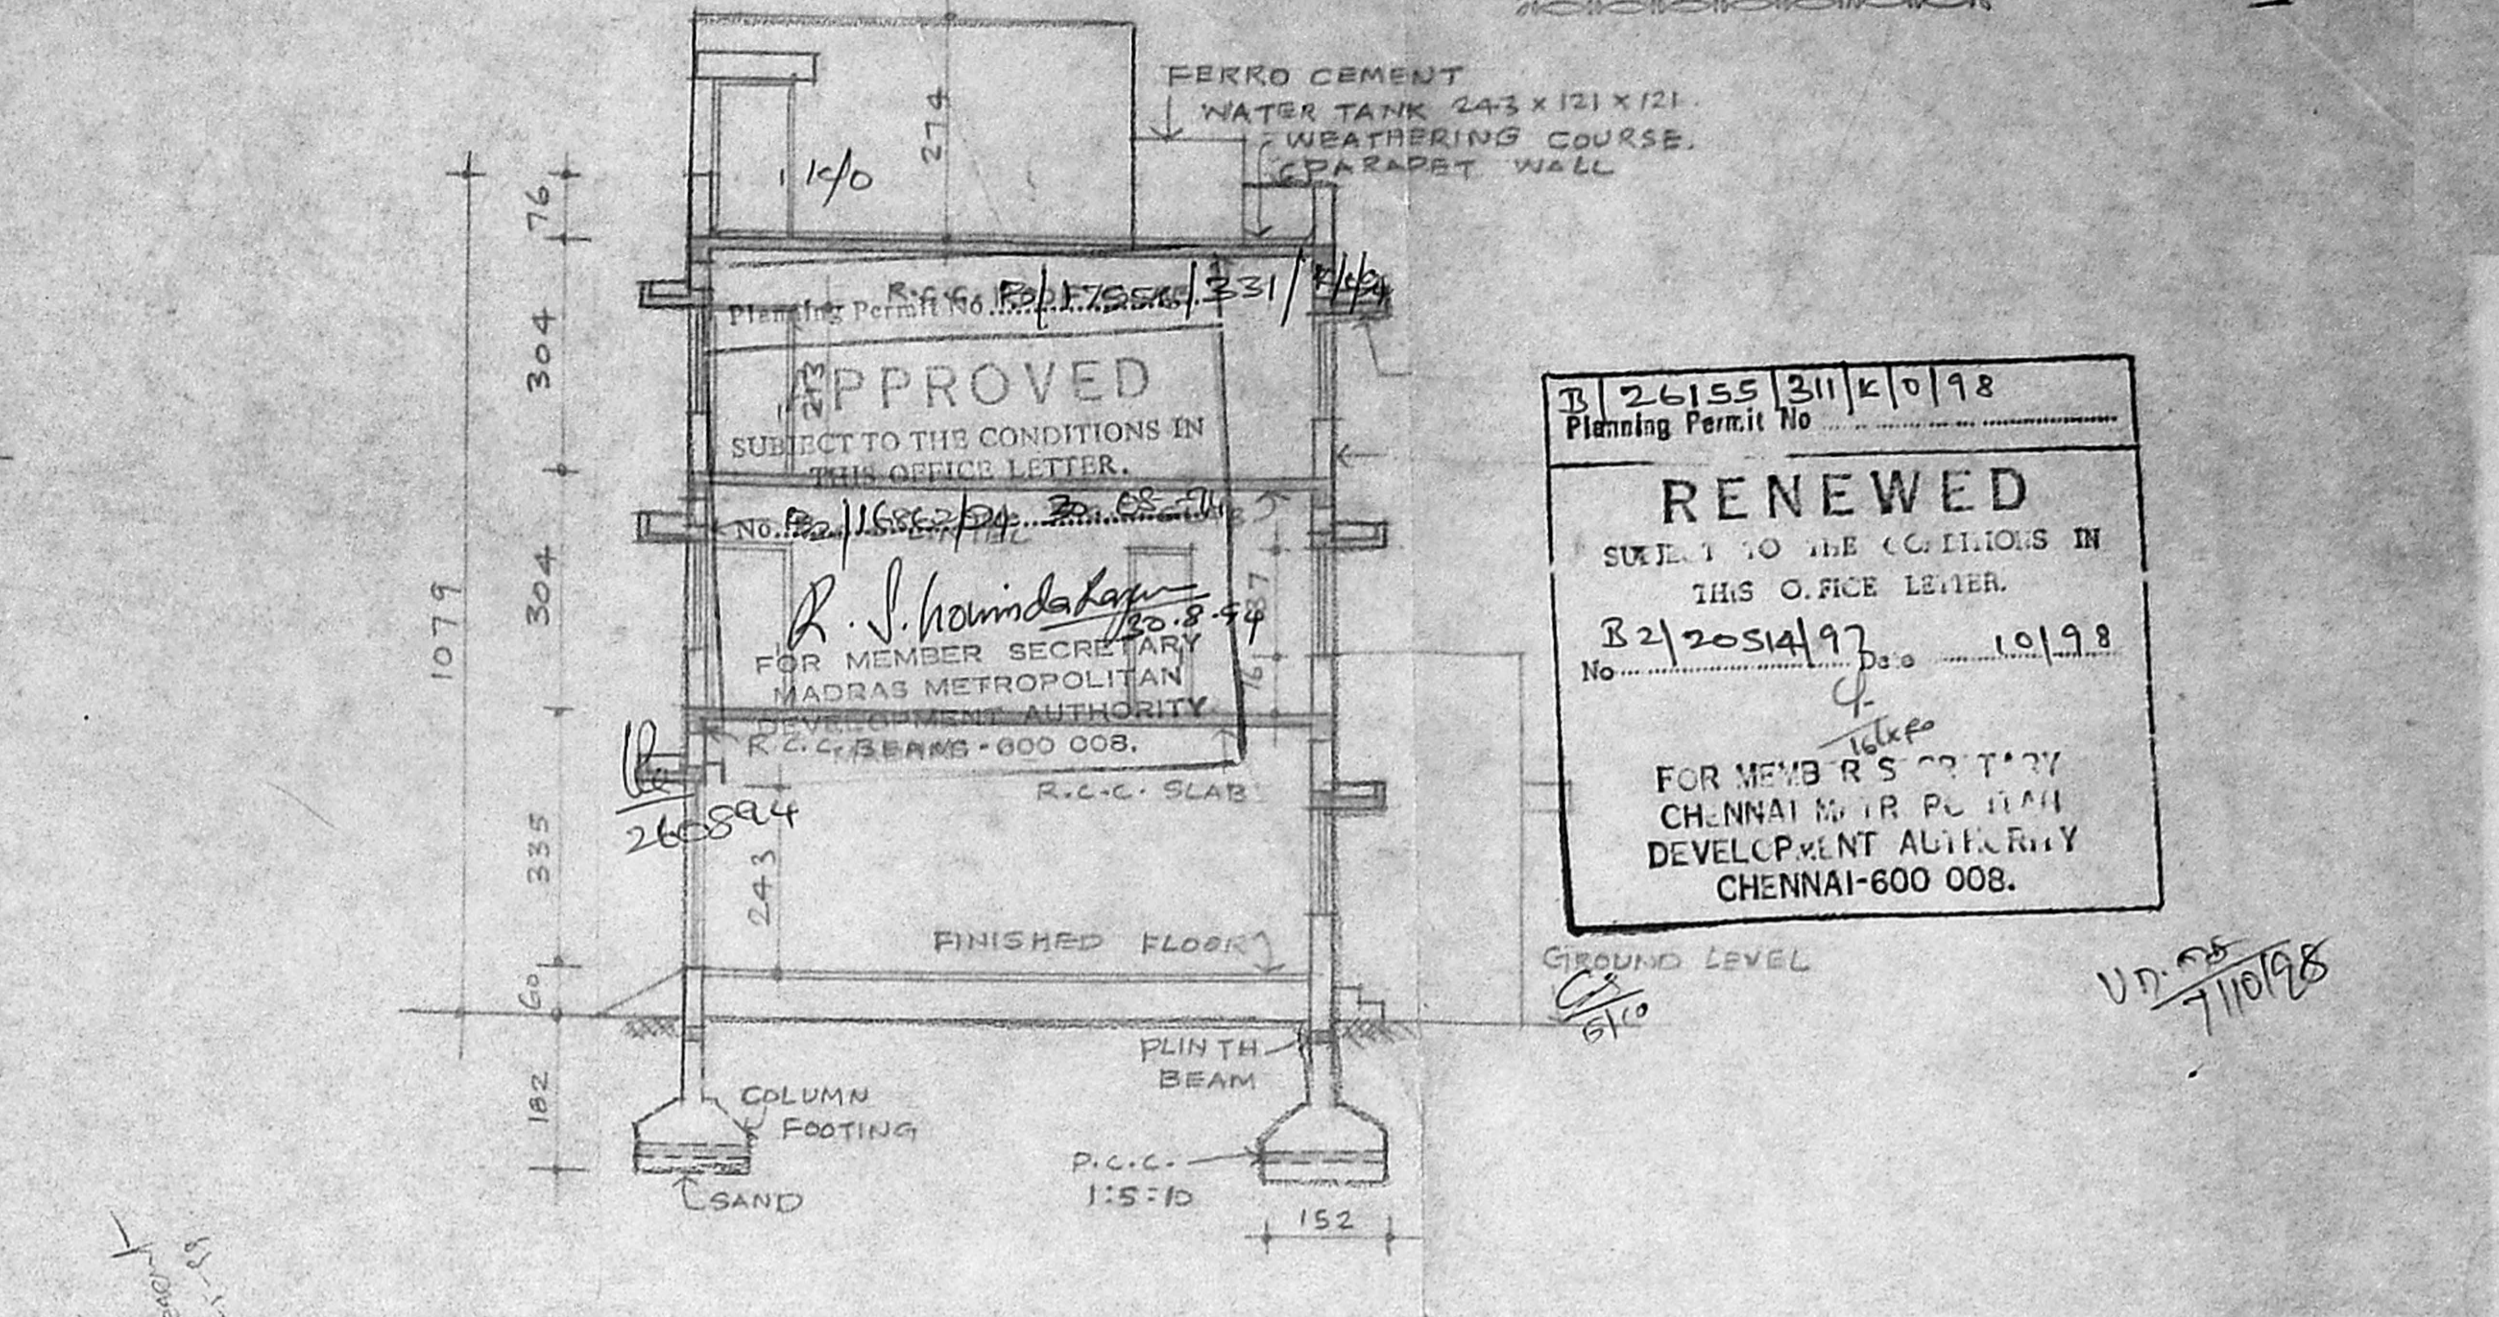 FERRO CEMENT
WATER TANK 243 x 121 x 121.
WEATHERING COURSE.
PARAPET WALL
274
K/O
76
304
304
1079
335
60
182
Planning Permit No
331/
APPROVED
243
SUBJECT TO THE CONDITIONS IN
THIS OFFICE LETTER.
No. B2/16862/94 30-08-94
R. S.
30.8.94
FOR MEMBER SECRETARY
MADRAS METROPOLITAN
DEVELOPMENT AUTHORITY
MADRAS-600 008.
R.C.C. BEAMS
R.C.C. SLAB
260894
243
FINISHED FLOOR
GROUND LEVEL
PLINTH
BEAM
COLUMN
FOOTING
SAND
P.C.C.
1:5:10
152
B/26155/311/K/O/98
Planning Permit No
RENEWED
SUBJECT TO THE CONDITIONS IN
THIS OFFICE LETTER.
No B2/20514/97 Date 10/98
FOR MEMBER SECRETARY
CHENNAI METROPOLITAN
DEVELOPMENT AUTHORITY
CHENNAI-600 008.
6/10
7/10/98